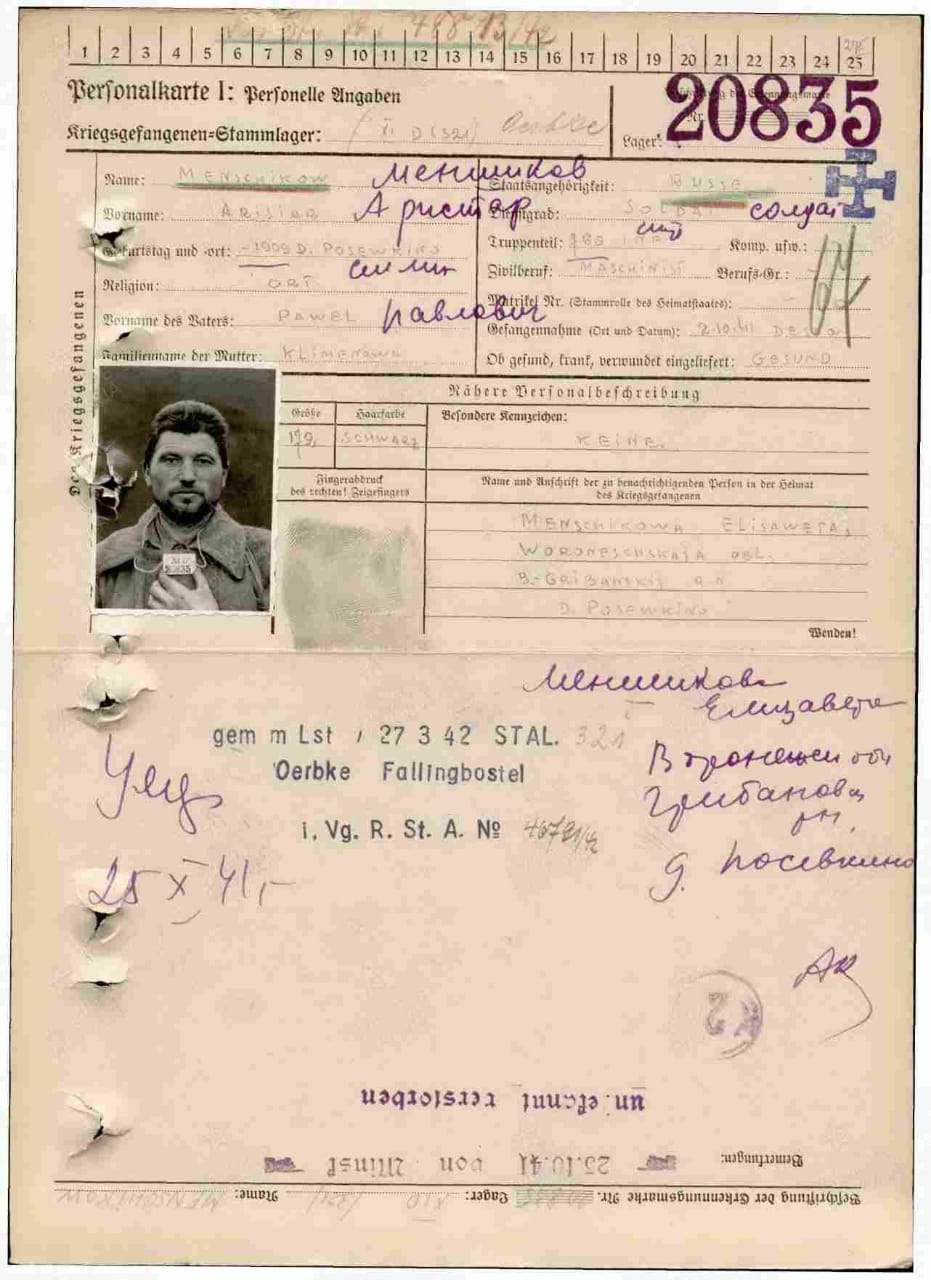 1 2 3 4 5 6 7 8 9 10 11 12 13 14 15 16 17 18 19 20 21 22 23 24 25
Personalkarte I: Personelle Angaben
20835
Kriegsgefangenen=Stammlager: XI D (321) Oerbke
Lager:
Name: MENSCHIKOW Меншиков
Staatsangehörigkeit: RUSSE
Vorname: Аристар
Dienstgrad: SOLDAT солдат
Geburtstag und -ort: -1909 D. POSEWKINO
Truppenteil: Komp. usw.:
Religion: ORT.
Zivilberuf: MASCHINIST Berufs-Gr.:
Matrikel Nr. (Stammrolle des Heimatstaates):
Vorname des Vaters: PAWEL Павлович
Gefangennahme (Ort und Datum): 2.10.41
Familienname der Mutter:
Ob gesund, krank, verwundet eingeliefert: GESUND
Des Kriegsgefangenen
Nähere Personalbeschreibung
Größe
Haarfarbe
Besondere Kennzeichen:
172
SCHWARZ
KEINE.
Fingerabdruck
des rechten! Zeigefingers
Name und Anschrift der zu benachrichtigenden Person in der Heimat
des Kriegsgefangenen
XI D
20835
MENSCHIKOWA ELISAWETA,
WORONESCHSKAJA OBL.
B.-GRIBANSKIJ R.N.
D. POSEWKINO
Wenden!
Меншикова
Елизавета
gem m Lst 27 3 42 STAL. 321
Oerbke Fallingbostel
Грибановск
рн.
i. Vg. R. St. A. №
д. Посевкино
25 X 41,-
unbekannt verstorben
Bemerkungen: 25.10.41 von Minsk
Beschriftung der Erkennungsmarke Nr. 20835 Lager: XI D (321) Name: MENSCHIKOW